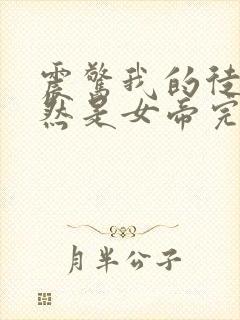 震惊我的徒
然是女帝完
月半公子